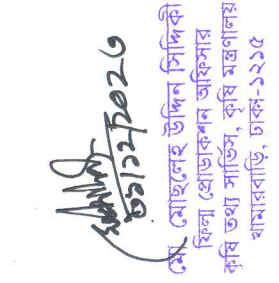 ৩১/১২/২০২৩
মোঃ মোছলেহ উদ্দিন সিদ্দিকী
ফিল্ম প্রোডাকশন অফিসার
কৃষি তথ্য সার্ভিস, কৃষি মন্ত্রণালয়
খামারবাড়ি, ঢাকা-১২১৫